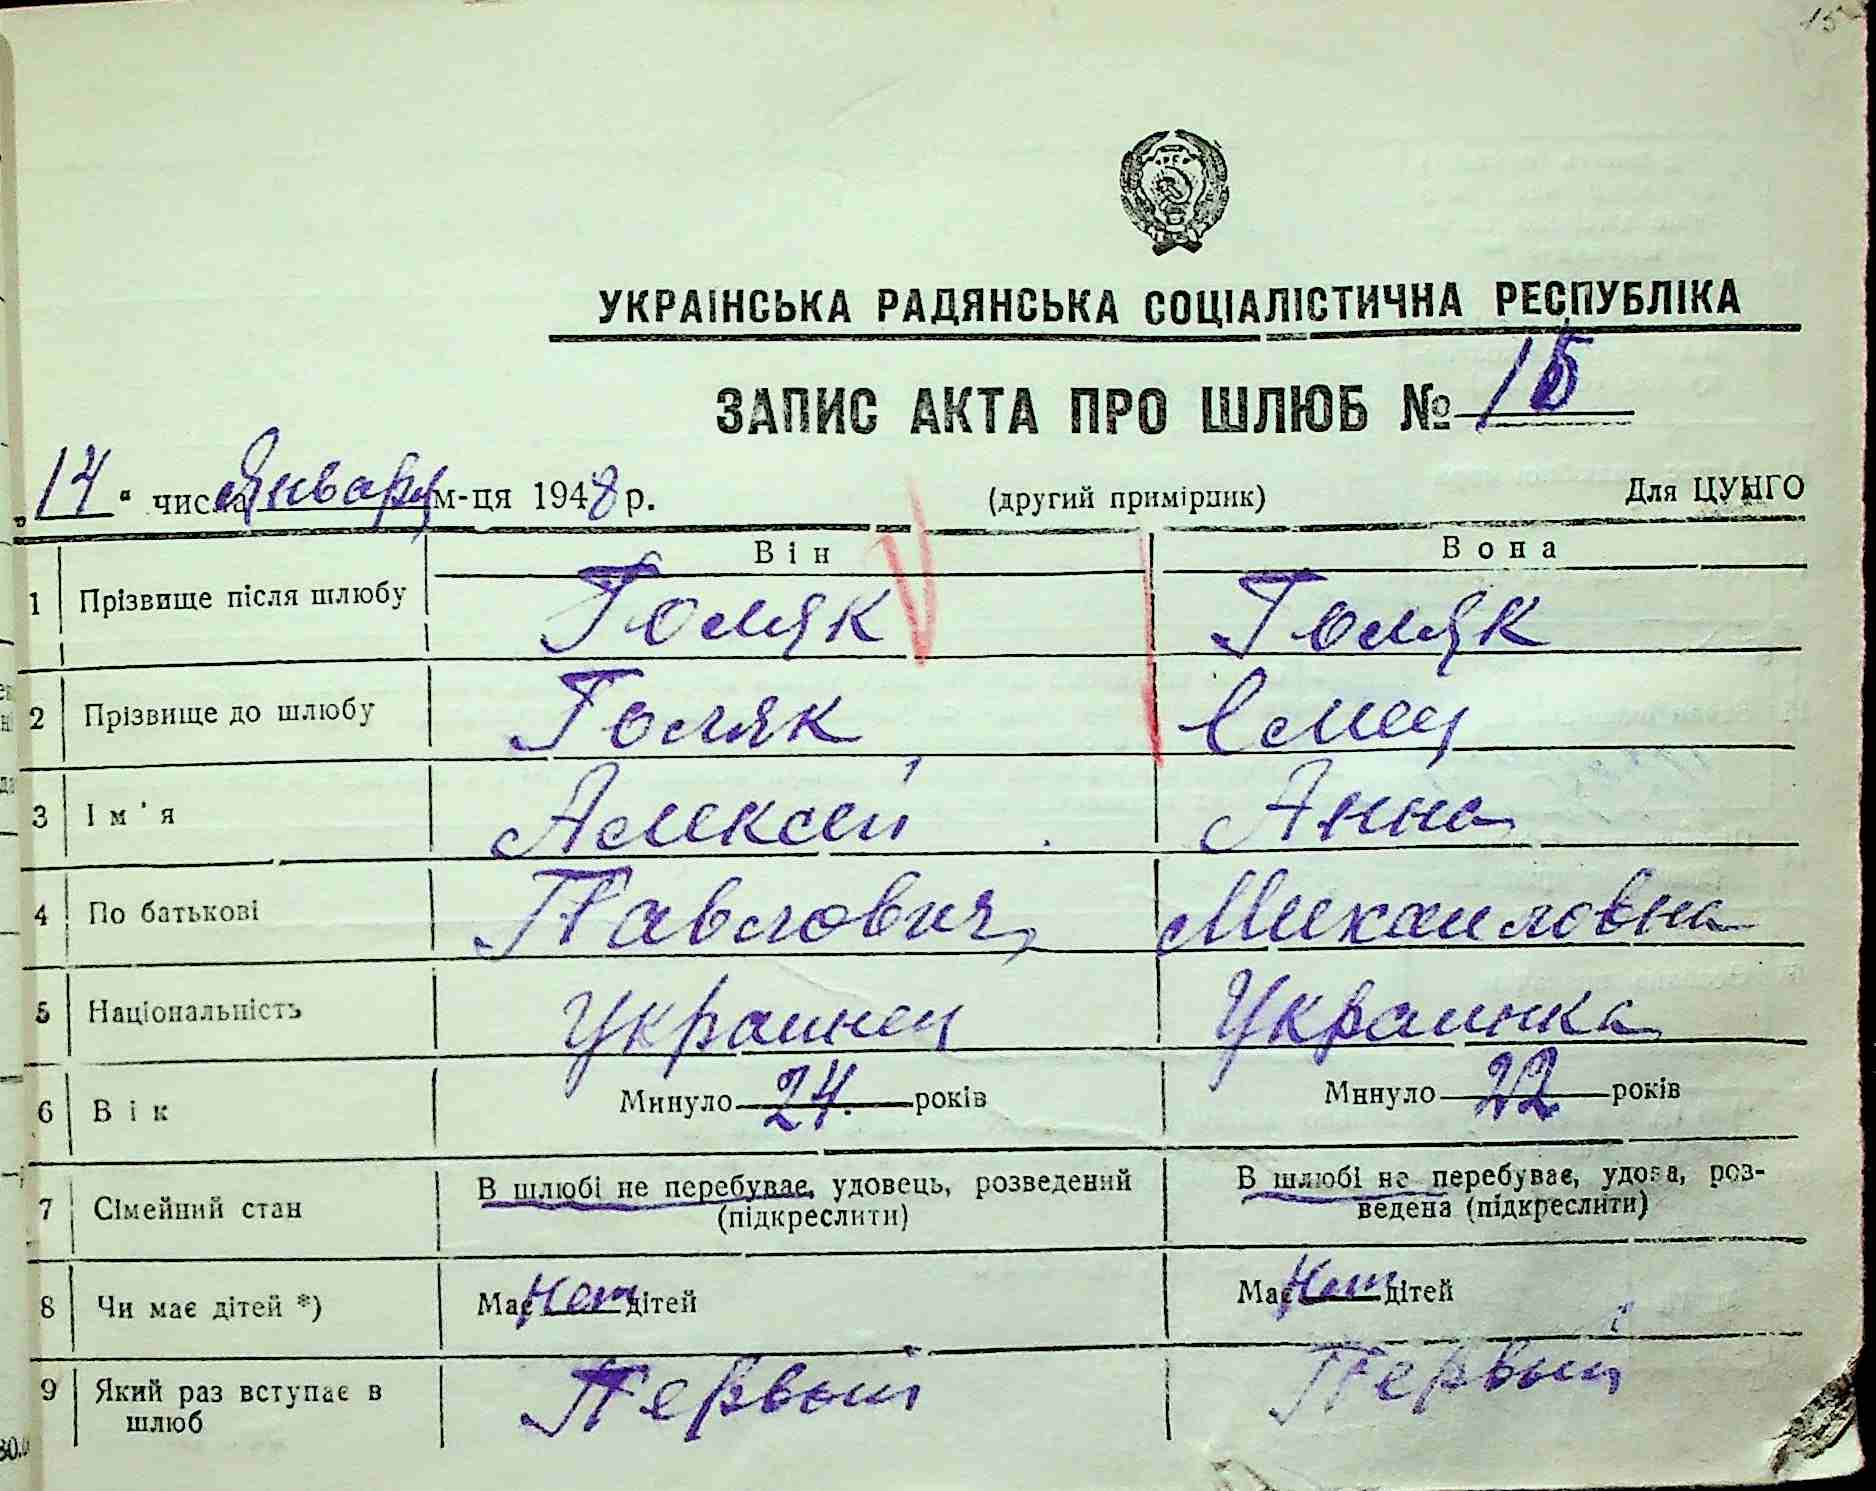 15
УКРАЇНСЬКА РАДЯНСЬКА СОЦІАЛІСТИЧНА РЕСПУБЛІКА
ЗАПИС АКТА ПРО ШЛЮБ № 15
„14“ числа Января м-ця 1948 р. (другий примірник) Для ЦУНГО
Він Вона
1 Прізвище після шлюбу Голяк Голяк
2 Прізвище до шлюбу Голяк Емец
3 Ім'я Алексей Анна
4 По батькові Павлович Михаиловна
5 Національність Украинец Украинка
6 Вік Минуло 24. років Минуло 22 років
7 Сімейний стан В шлюбі не перебуває, удовець, розведений (підкреслити) В шлюбі не перебуває, удова, роз-
ведена (підкреслити)
8 Чи має дітей *) Має Нет дітей Має Нет дітей
9 Який раз вступає в шлюб Первый Первый